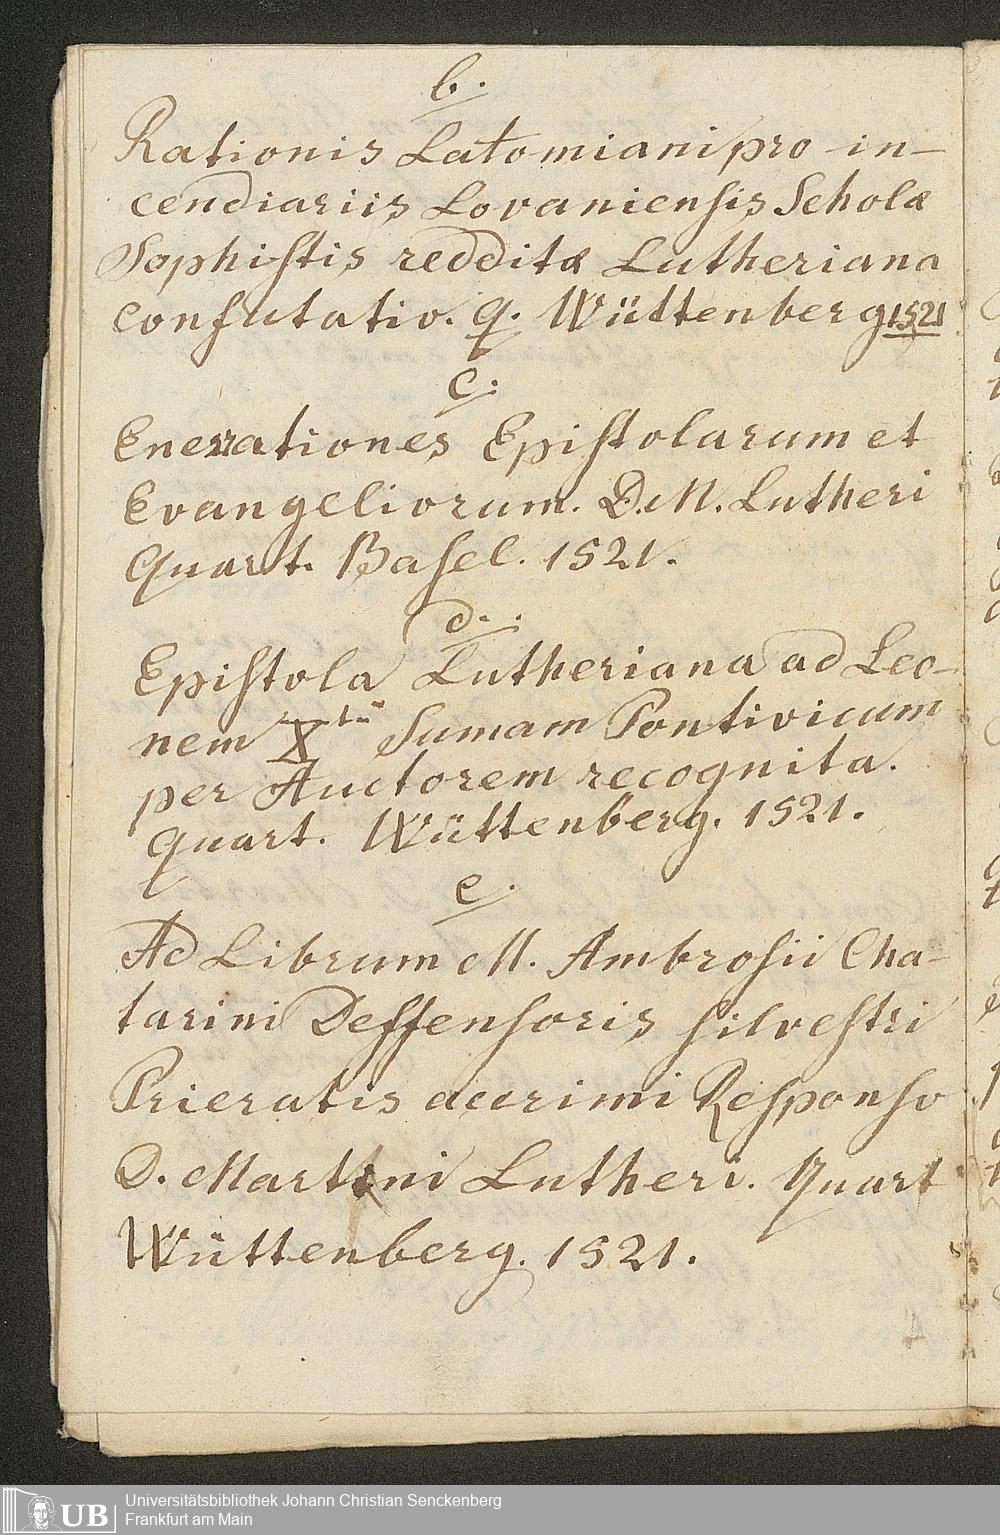 b.
Rationis Latomiani pro in-
cendiariis Lovaniensis Scholæ
Sophistis redditæ Lutheriana
Confutatio. q. Wüttenberg 1521
c.
Enerrationes Epistolarum et
Evangeliorum. D. M. Lutheri
Quart. Basel. 1521.
d.
Epistola Lutheriana ad Leo-
nem X tū Sumam Pontivicum
per Auctorem recognita.
Quart. Wüttenberg. 1521.
e.
Ad Librum M. Ambrosii Cha-
tarini Deffensoris Silvestri
Prieratis acerimi Responso
D. Martini Lutheri. Quart
Wüttenberg. 1521.
UB
Universitätsbibliothek Johann Christian Senckenberg
Frankfurt am Main